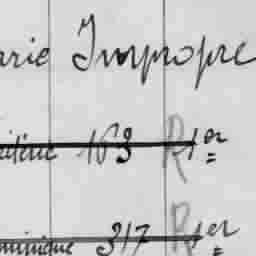 arie Impropre
163 R 1er
minique 317 R 1er